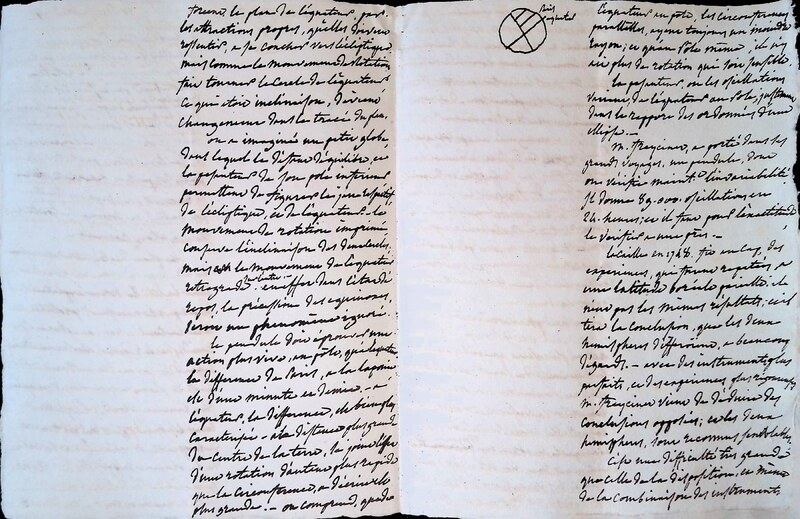 forcent, le plan de l'équateur, par
les attractions propres, qu'elles doivent
ressentir, à se coucher vers l'écliptique
mais comme le mouvement de rotation
fait tourner le cercle de l'équateur
ce qui était inclinaison, devient
changement dans la trace du plan.
on a imaginé un petit globe,
dans lequel le défaut d'équilibre, et
la pesanteur de son pôle inférieur
permettent de figurer le jeu respectif
de l'écliptique, et de l'équateur. le
mouvement de rotation imprimé,
conserve l'inclinaison des
mais le mouvement de l'équateur
rétrograde. en effet dans l'état de
repos, la précession des equinoxes,
serait un phénomène ignoré.
le pendule doit éprouver une
action plus vive, au pôle, qu'à l'équateur
la différence de Paris, à la laponie
est d'une minute et demie. - à
l'équateur, la différence, est bien plus
caractérisée - à la distance plus grande
du centre de la terre, se joint l'effet
d'une rotation d'autant plus rapide
que la circonférence, à décrire est
plus grande. - on comprend, que de
l'équateur au pôle, les circonférences
parallèles, ayant toujours un moindre
rayon; ce qu'au Pôle même, il n'y
ait plus de rotation qui soit sensible.
la pesanteur, ou les oscillations
varient, de l'équateur au Pôle, justement
dans le rapport des ordonnées d'une
ellipse. -
M. Freycinet, a porté dans ses
grands voyages, un pendule, dont
on vérifie maint. l'invariabilité
Il donne 89.000. oscillations en
24. heures; et il faut pour l'exactitude
le vérifier à une près. -
la Caille en 1748. fit au cap, des
expériences, qui furent répétées, à
une latitude boréale pareille. il
n'eut pas les mêmes résultats; et il
tira la conclusion, que les deux
hémisphères différaient, à beaucoup
d'égards. - avec des instruments plus
parfaits, et des expériences plus rigoureuses,
M. Freycinet vient de déduire des
conclusions opposées; et les deux
hémisphères, sont reconnus, semblables
C'est une difficulté très grande
que celle de la disposition, et même
de la combinaison des instruments